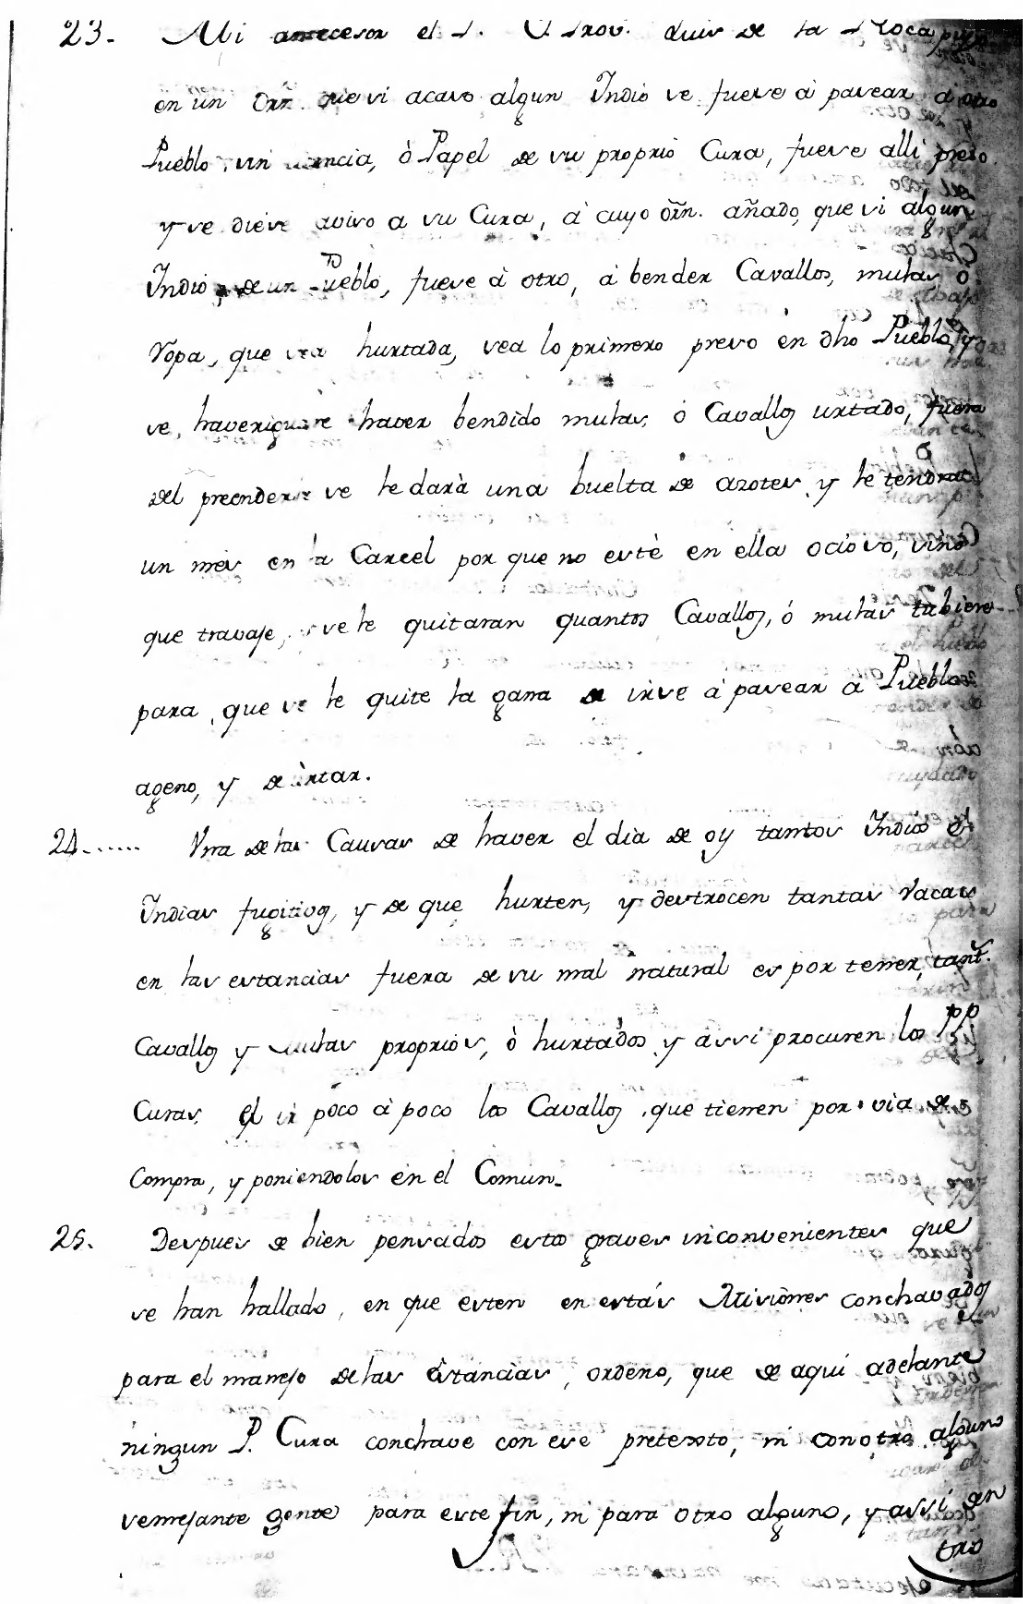 23. Mi antecesor el P. V. Prov. Luis de la Roca puso
en un Orn. que si acaso algun Indio se fuese á pasear á otro
Pueblo sin licencia, ò Papel de su proprio Cura, fuese alli preso
y se diese aviso a su Cura, á cuyo õrn. añado, que si algun
Indio, de un Pueblo, fuese à otro, á bender Cavallos, mulas ò
ropa, que sea hurtada, sea lo primero preso en dho Pueblo, y
se, haveriguare haver bendido mulas, ò Cavallos urtado, fuera
del preenderse se le darà una buelta de azotes, y le tendran
un mes en la Carcel por que no estè en ella ocioso, sino
que travaje, y se le quitaran quantos Cavallos, ó mulas tubiere
para, que se le quite la gana de irse á pasear a Pueblo
ageno, y de urtar.
24...... Una de las Causas de haver el dia de oy tantos Indios è
Indias fugitivos, y de que, hurten, y destrocen tantas Vacas
en las estancias fuera de su mal natural es por tener, tant.
Cavallos y mulas proprios, ò hurtados y assi procuren los PP
Curas, el ir poco á poco los Cavallos, que tienen por via de
Compra, y poniendolos en el Comun.
25. Despues de bien pensados estos graves inconvenientes que
se han hallado, en que esten en estás Misiones conchavados
para el manejo de las Estancias, ordeno, que de aqui adelante
ningun P. Cura conchave con ese pretexto, ni con otro alguno
semejante gente para este fin, ni para otro alguno, y assi en
tro